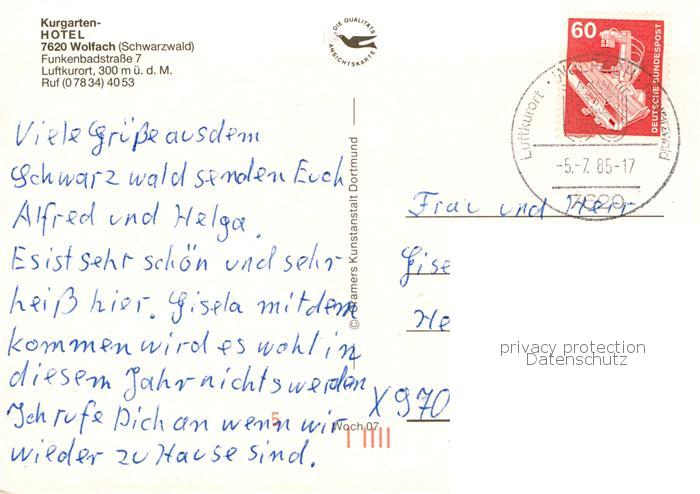 Kurgarten-
HOTEL
7620 Wolfach (Schwarzwald)
Funkenbadstraße 7
Luftkurort, 300 m ü. d. M.
Ruf (0 78 34) 40 53
DIE QUALITÄTS
ANSICHTSKARTE
60
DEUTSCHE BUNDESPOST
Luftkurort
-5.-7. 85-17
7620
Viele Grüße aus dem
Schwarzwald senden Euch
Alfred und Helga.
Es ist sehr schön und sehr
heiß hier. Gisela mit dem
kommen wird es wohl in
diesem Jahr nichts werden
Ich rufe Dich an wenn wir
wieder zu Hause sind.
© Kramers Kunstanstalt Dortmund
Frau und Herr
Gise
He
X 970
privacy protection
Datenschutz
5
Woch 07